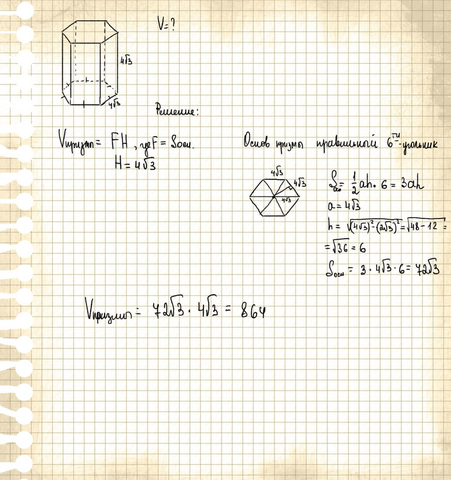 V=?
4√3
4√3
Решение:
Vпризм = FH, где F = Sосн.
H = 4√3
Основ призмы правильный 6-угольник
4√3
4√3
4√3
Sосн = 1/2 ah · 6 = 3ah
a = 4√3
h = √(4√3)²-(2√3)² = √48-12 =
= √36 = 6
Sосн = 3 · 4√3 · 6 = 72√3
Vпризмы = 72√3 · 4√3 = 864